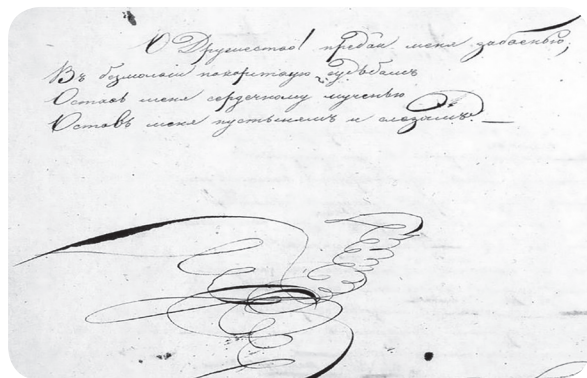 О Дружество! предай меня забвенью;
Въ безмолвіи покорствую судьбамъ
Оставь меня сердечному мученью
Оставь меня пустынямъ и слезамъ. —